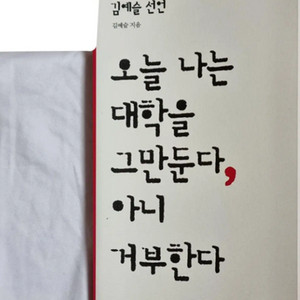 김예슬 선언
김예슬 지음
오늘 나는
대학을
그만둔다,
아니
거부한다